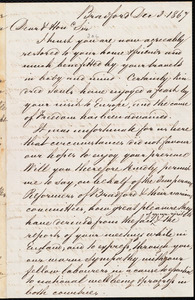 Bradford Dec 2 1867
Dear & Honᵈ Sir
I trust you are now agreeably
restored to your home & friends and
much benefitted by your travels
in body and mind. Certainly kin-
dred souls have enjoyed a feast by
your visit to Europe, and the cause
of Freedom has been advanced.
It was unfortunate for us here
that circumstances did not favour
our hopes to enjoy your presence
Will you therefore kindly permit
me to say, on behalf of the
Reformers of Bradford & their own
committee, how great pleasure they
have derived from the
reports of your meetings while in
England, and to express, through you,
our warm sympathy with your
fellow labourers in a cause so hostile
to national wellbeing progress in
both countries